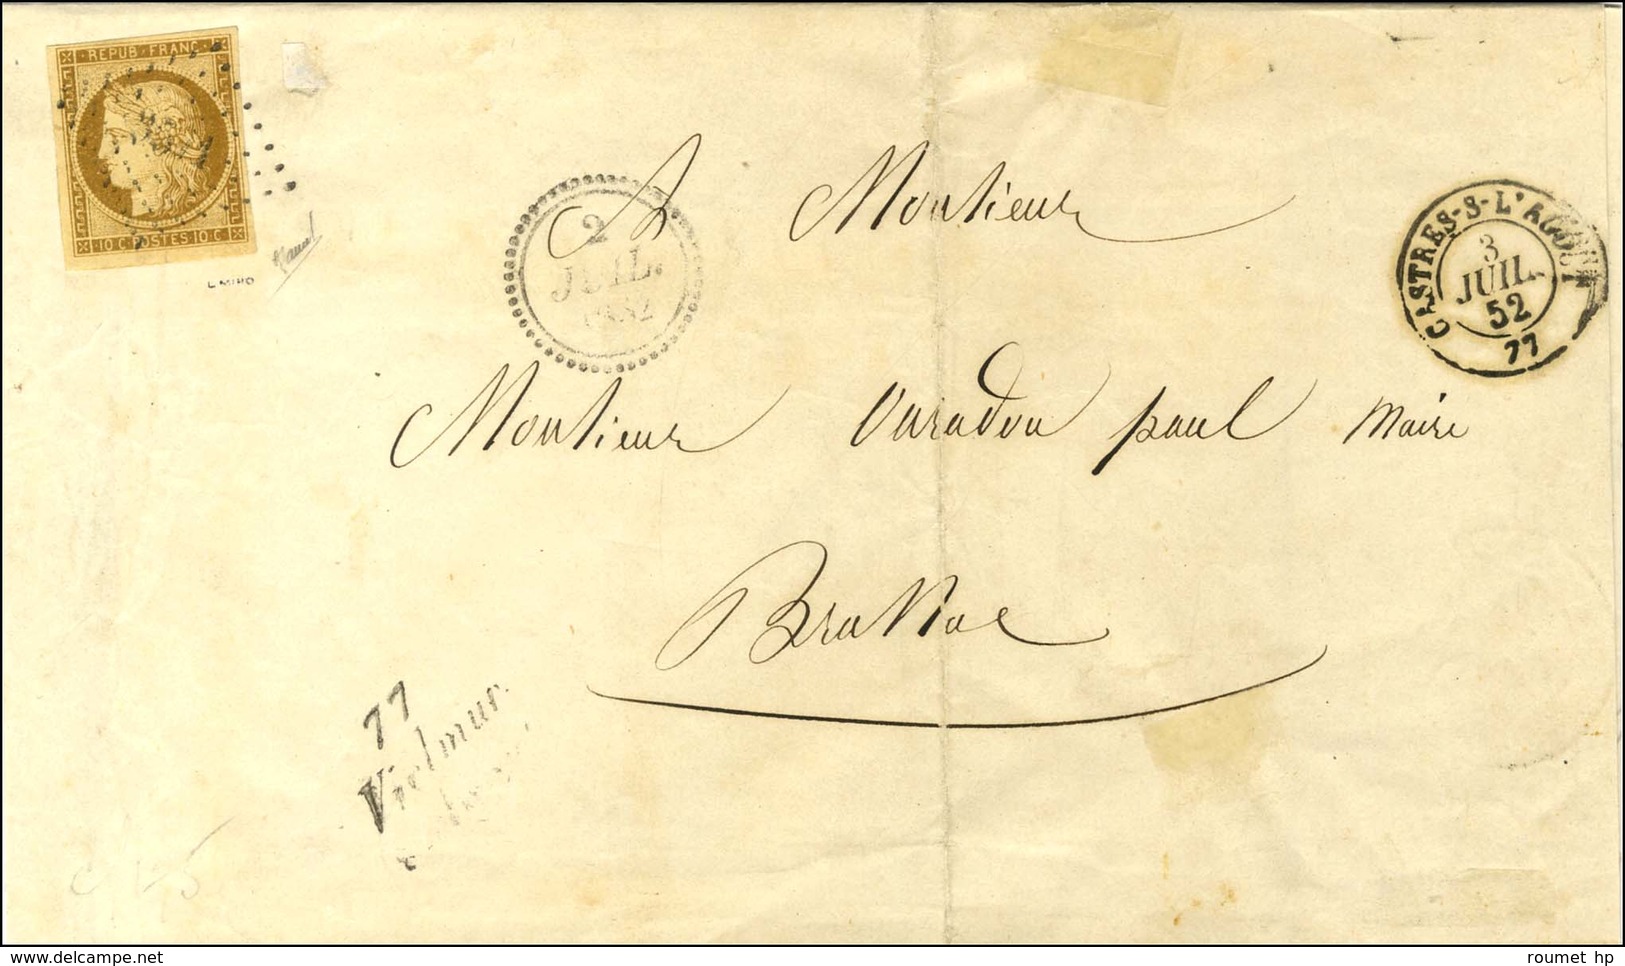 REPUB · FRANC ·
10 C · POSTES · 10 C ·
L MIRO
2
JUIL.
1852
CASTRES-S-L'AGOUT
3
JUIL.
52
77
A Monsieur
Monsieur paul Maire
Brassac
77
Vielmur.
roumet hp